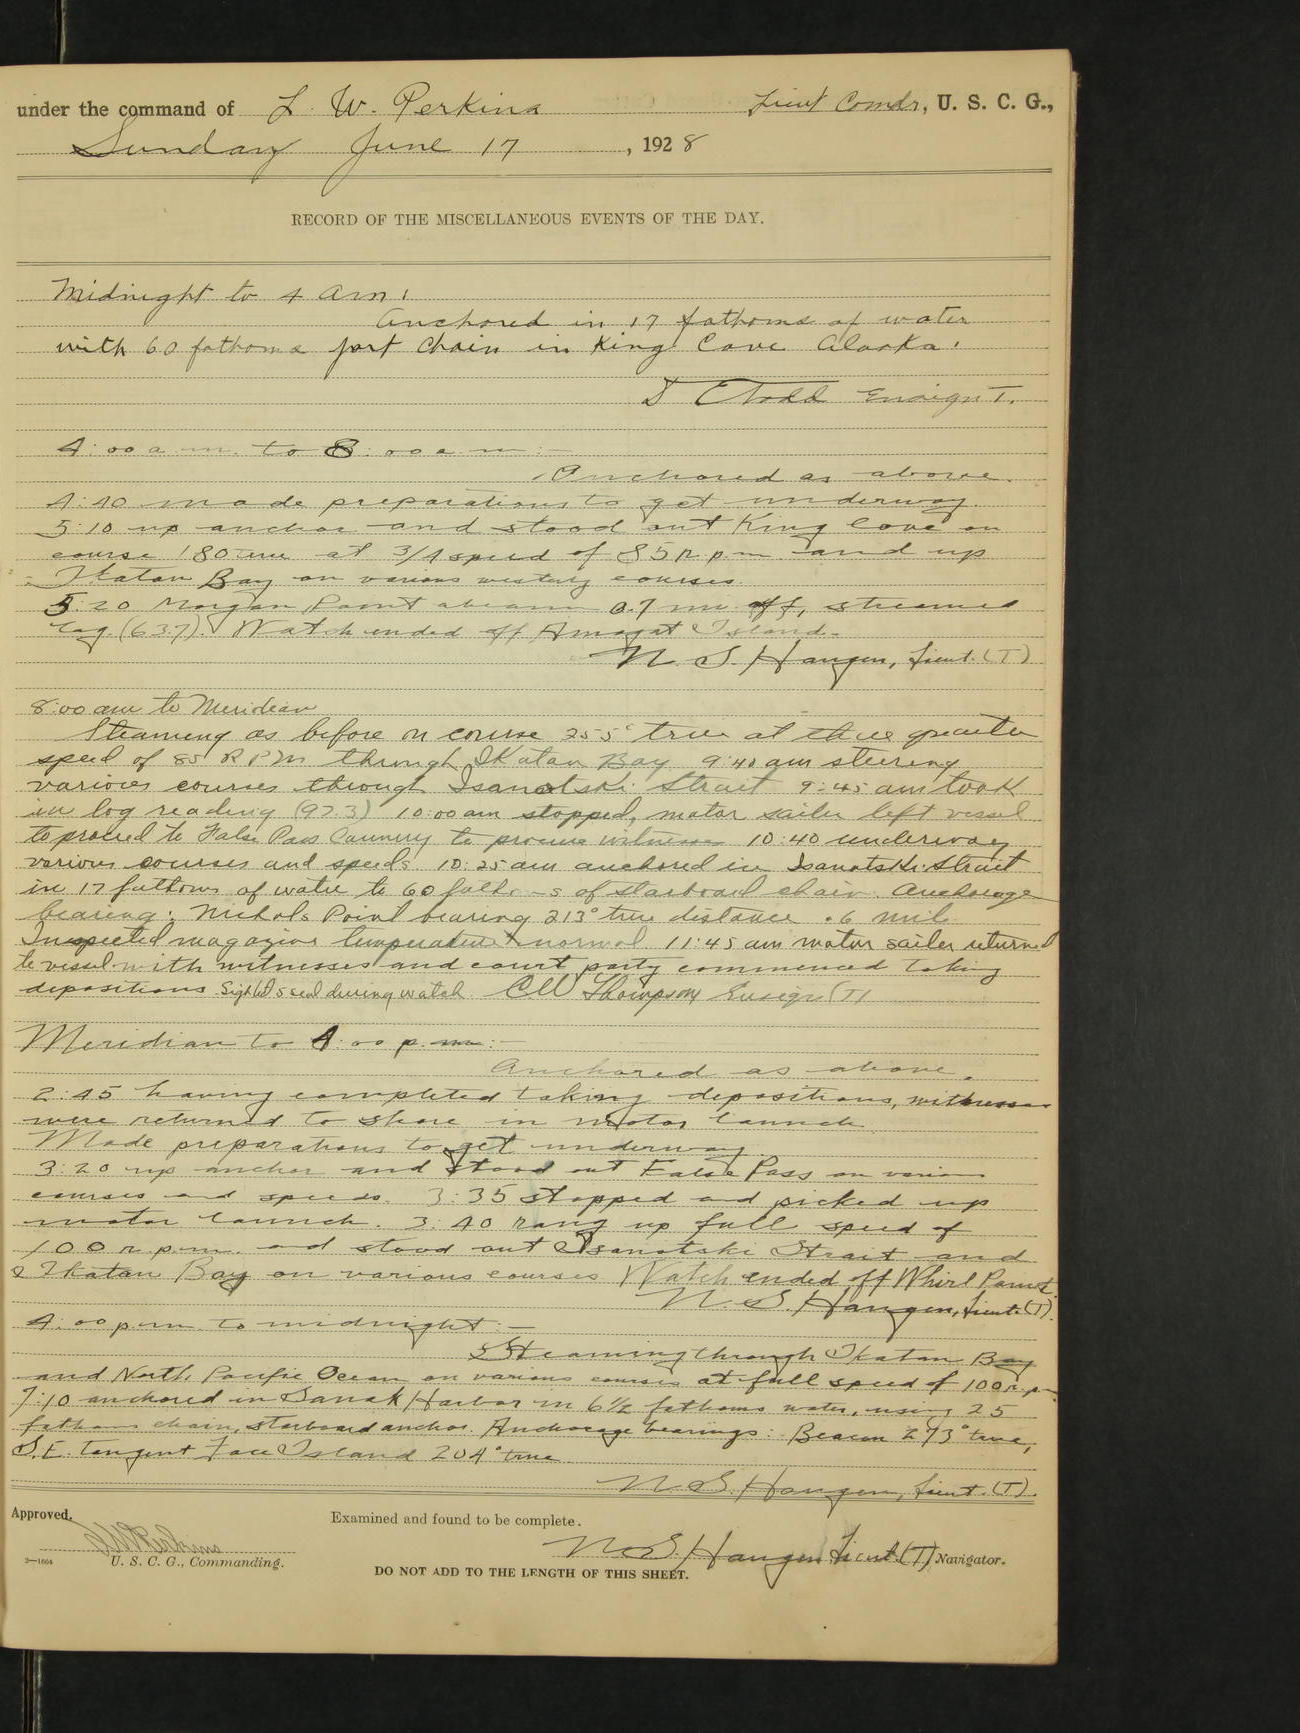 under the command of L. W. Perkins Lieut Comdr, U. S. C. G.,
Sunday June 17, 1928
RECORD OF THE MISCELLANEOUS EVENTS OF THE DAY.
Midnight to 4 am:
Anchored in 17 fathoms of water
with 60 fathoms port chain in King Cove Alaska.
Todd Ensign T.
4:00 a.m. to 8:00 a.m:-
Anchored as above.
4:40 made preparations to get underway.
5:10 up anchor and stood out King Cove on
course 180 true at 3/4 speed of 85 r.p.m and up
Ikatan Bay on various westerly courses.
5:20 Morgan Point abeam 0.7 mi off, streamed
log (63.7). Watch ended off Amagat Island.
N. S. Haugen, Lieut. (T)
8:00 am to Meridian
Steaming as before on course 255° true at three quarter
speed of 85 R P M through Ikatan Bay 9:40 am steering
various courses through Isanotski Strait 9:45 am took
in log reading (97.3) 10:00 am stopped, motor sailer left vessel
to proceed to False Pass Cannery to procure witnesses 10:40 underway
various courses and speeds. 10:25 am anchored in Isanotski Strait
in 17 fathoms of water to 60 fathoms of starboard chain. Anchorage
bearing: Nichols Point bearing 213° true distance .6 mile
Inspected magazine temperature normal 11:45 am motor sailer returned
to vessel with witnesses and court party commenced taking
depositions Sighted seal during watch. C W Thompson Ensign (T)
Meridian to 4:00 p.m:-
Anchored as above.
2:45 having completed taking depositions, witnesses
were returned to shore in motor launch
Made preparations to get underway.
3:20 up anchor and stood out False Pass on various
courses and speeds. 3:35 stopped and picked up
motor launch. 3:40 rang up full speed of
100 r.p.m. and stood out Isanotski Strait and
Ikatan Bay on various courses Watch ended off Whirl Point.
N. S. Haugen, Lieut. (T).
4:00 p.m. to midnight:-
Steaming through Ikatan Bay
and North Pacific Ocean on various courses at full speed of 100 r.p.m
7:10 anchored in Sanak Harbor in 6½ fathoms water, using 25
fathoms chain, starboard anchor. Anchorage bearings: Beacon 293° true,
S.E. tangent Island 204° true
N. S. Haugen, Lieut. (T).
Approved.
Examined and found to be complete.
L W Perkins
N. S. Haugen Lieut. (T) Navigator.
2—1664 U. S. C. G., Commanding.
DO NOT ADD TO THE LENGTH OF THIS SHEET.